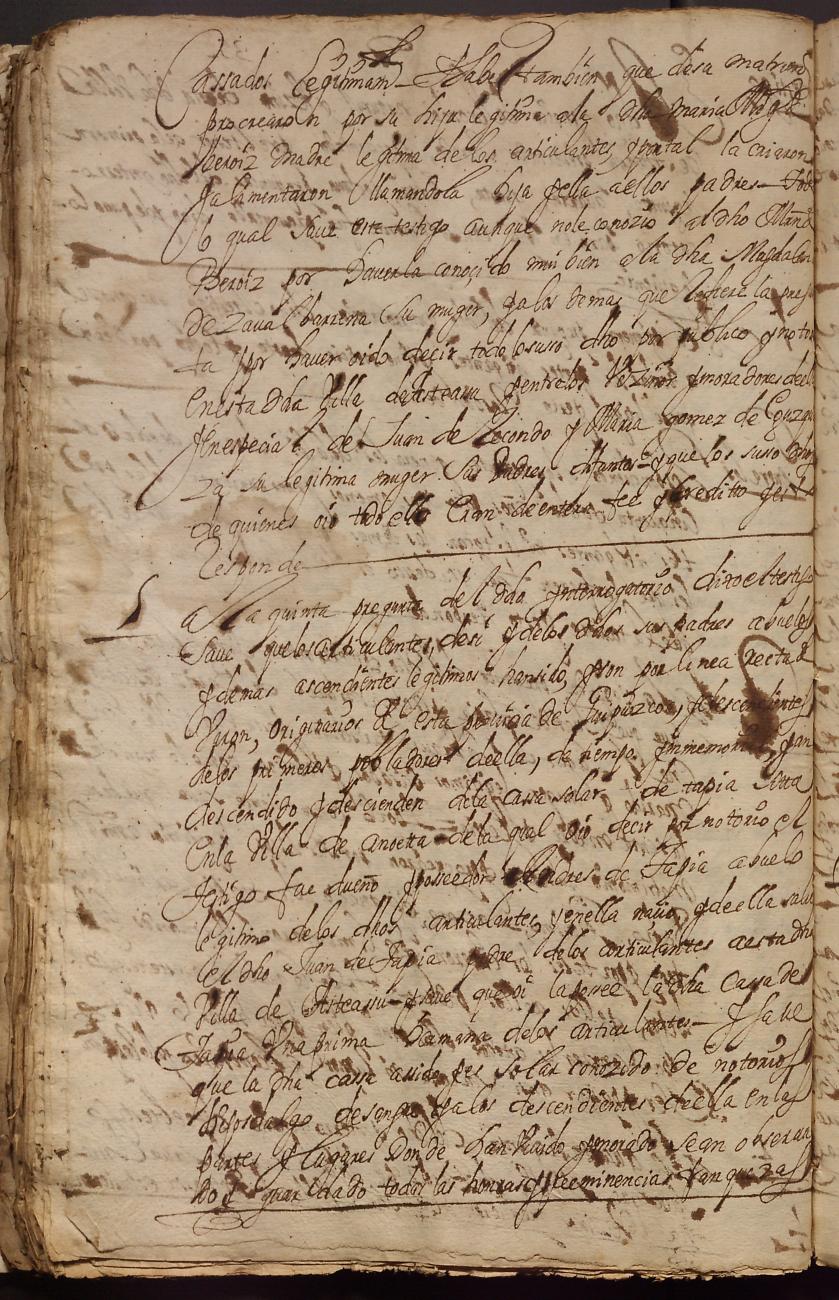 Cassados Legitimam.te Y sabe tambien que desa matrim
procrearon por su hija legitima a la dha maria Magd.
Beroiz madre legitima de los articulantes y por tal la criaron
y alimentaron llamandola hija y ella a ellos padres — todo
lo qual save este testigo aunque no le conozio al dho Martin
Beroiz por haverla conoçido mui bien a la dha Magdalena
de Zavalbarrena su muger, y a los demas que refiere la preg
ta por haver oido decir todo lo suso dho por publico y noto
en esta dha Villa de Asteasu y entre los Vezinos y moradores de el
y en especial de Juan de Elecondo y Maria gomez de
za su legitima muger sus Padres difuntos — y que los suso dhos
de quienes oio todo ello eran de entera fee y creditto y esto
Responde
5 a la quinta pregunta del dho Ynterrogatorio dixo el testigo
save que los articulantes, de si y de los dhos sus padres abuelos
y demas ascendientes legitimos han sido, y son por linea recta de
Varon, originarios de esta provincia de Guipuzcoa, y descendientes
de los primeros pobladores de ella, de tiempo ynmemorial, y an
descendido y descienden de la cassa solar de tapia sitta
en la Villa de anoetta de la qual oio decir por notorio el
testigo fue dueño y poseedor Andres de Tapia abuelo
legitimo de los dhos articulantes, y en ella nacio, y de ella salio
el dho Juan de Tapia padre de los articulantes a esta dha
Villa de Asteasu — y save que oi la posee la dha Cassa de
Tapia Una prima hermana de los articulantes — Y save
que la dha cassa a sido y es solar conozido de notorios
hijosdalgo de sangre y a los descendientes de ella en las
partes y lugares donde han Vivido y morado se an observa
do y guardado todas las honrras y preeminencias franquezas